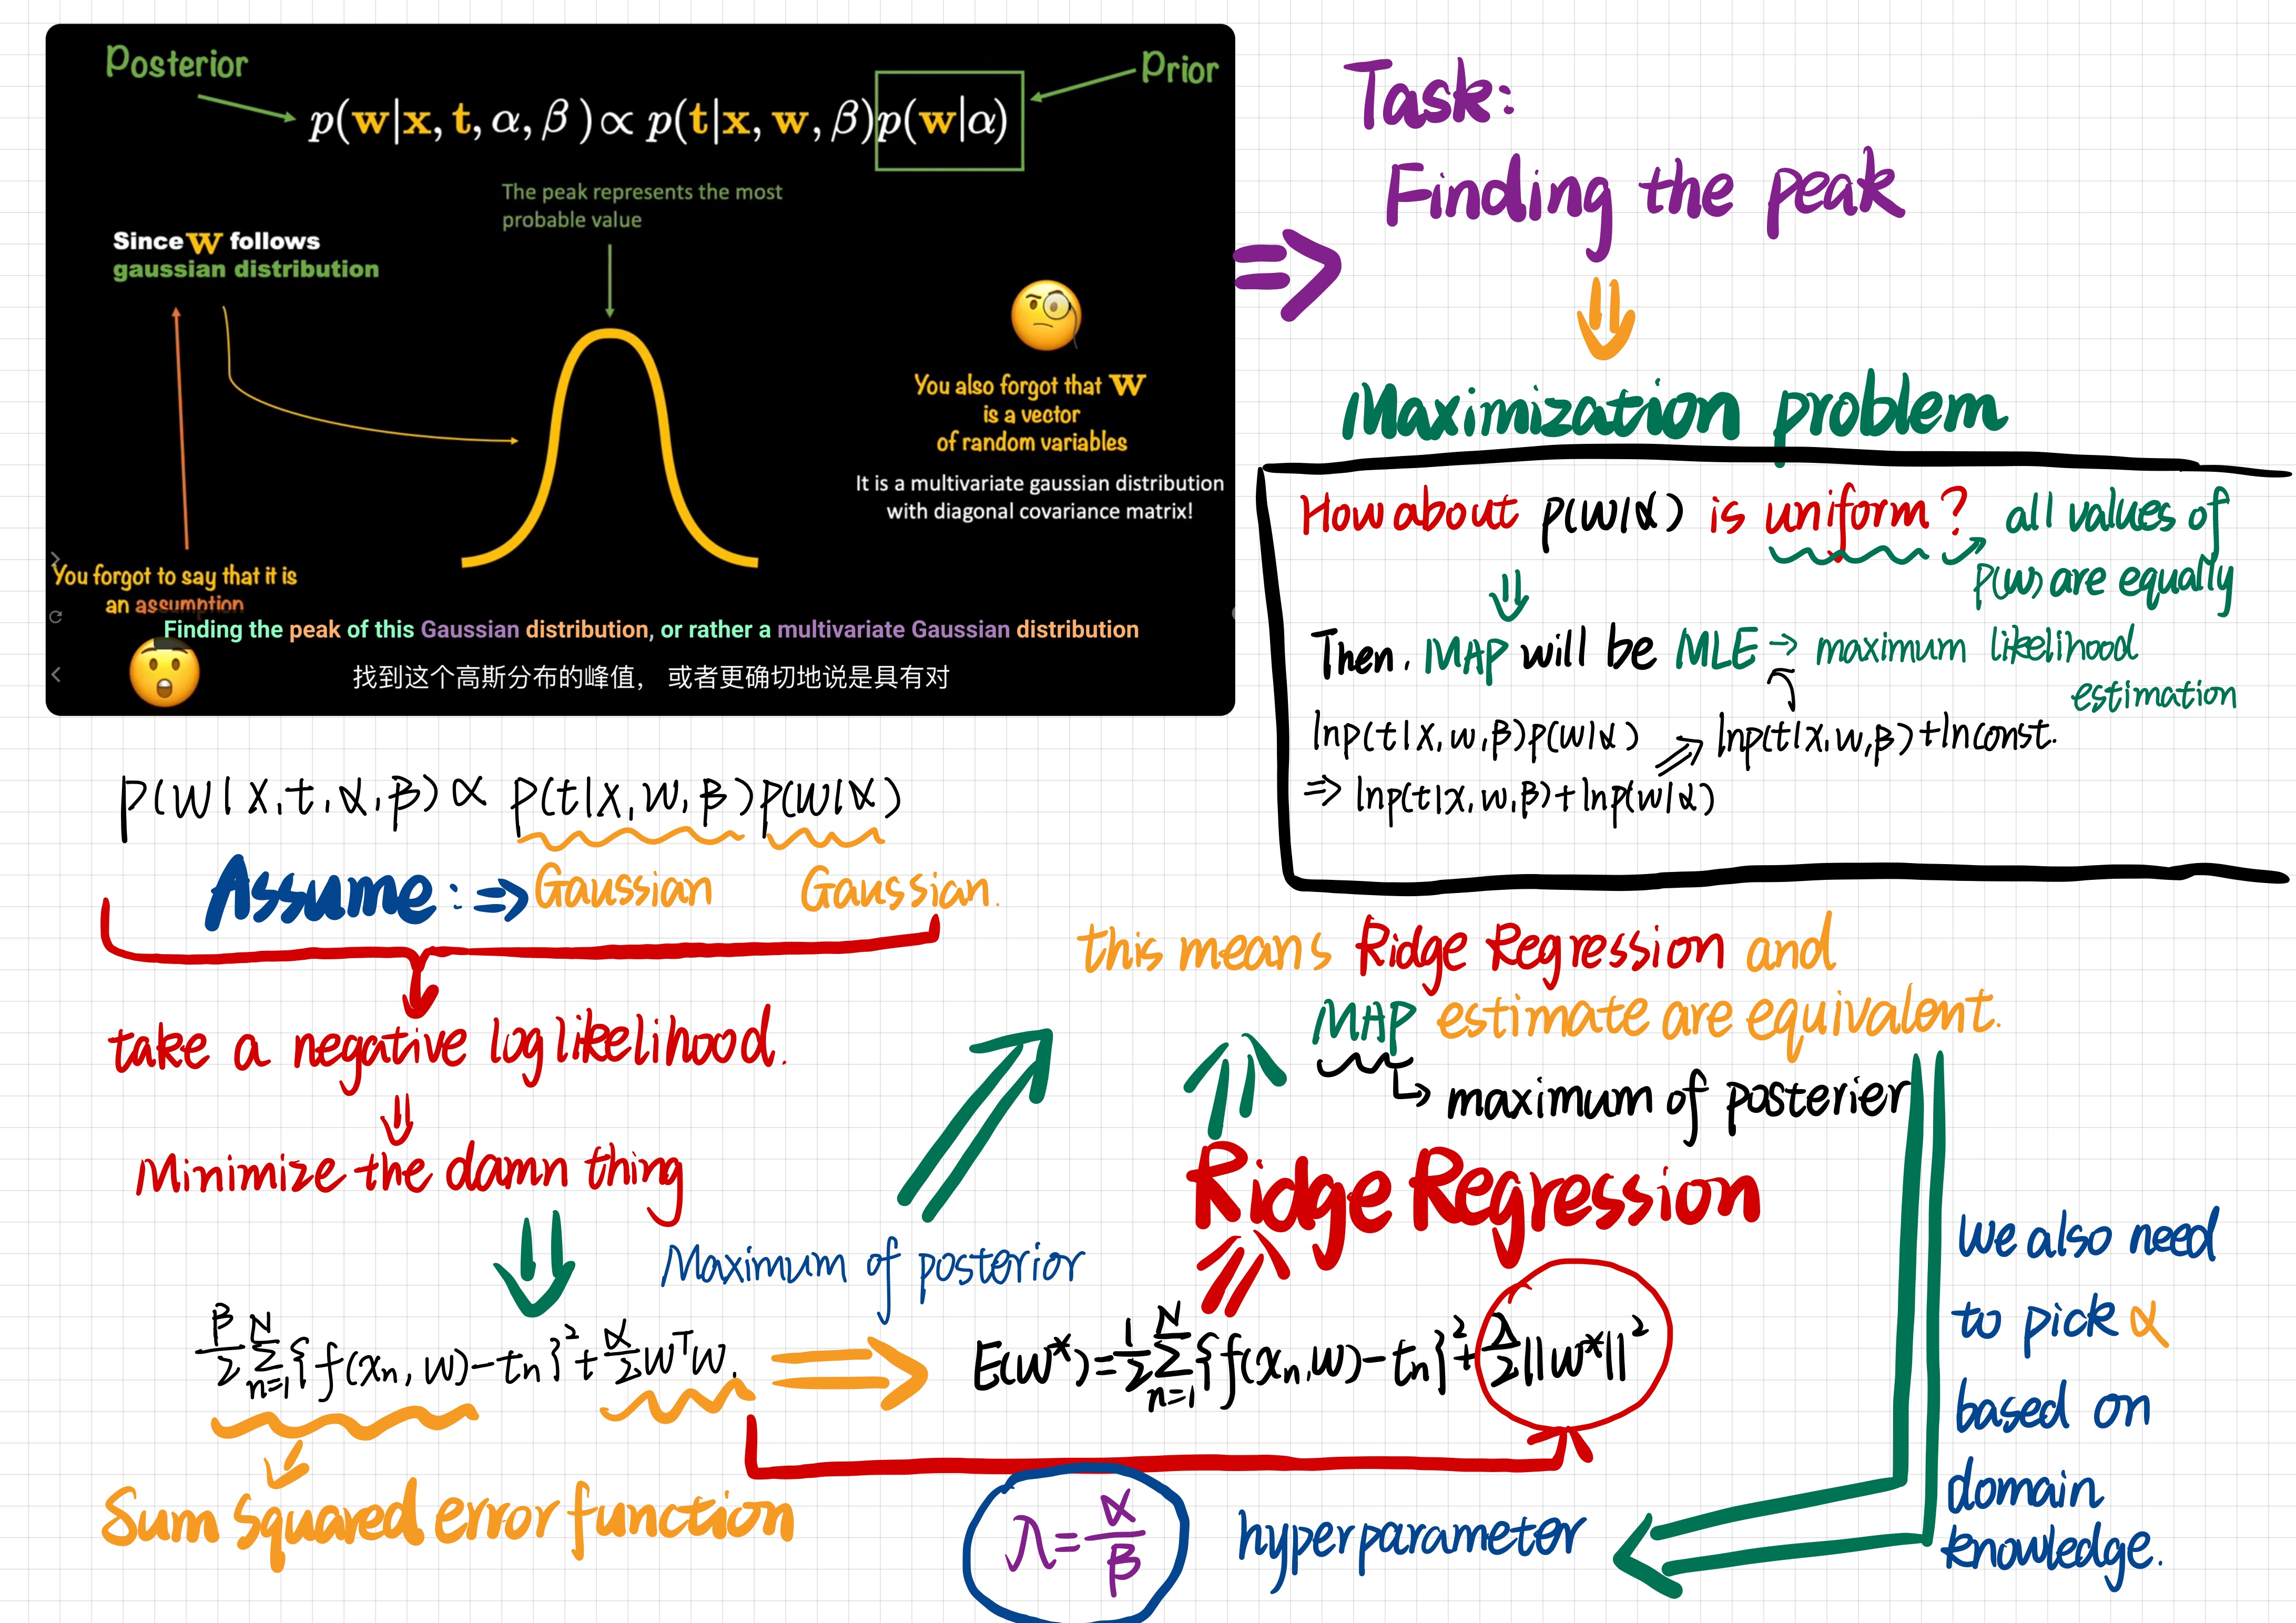 Posterior
Prior
p(w|x, t, α, β) ∝ p(t|x, w, β)p(w|α)
The peak represents the most
probable value
Since w follows
gaussian distribution
You also forgot that w
is a vector
of random variables
It is a multivariate gaussian distribution
with diagonal covariance matrix!
You forgot to say that it is
an assumption
Finding the peak of this Gaussian distribution, or rather a multivariate Gaussian distribution
找到这个高斯分布的峰值， 或者更确切地说是具有对
⇒
Task:
Finding the peak
⇓
Maximization problem
How about p(w|α) is uniform? → all values of
p(w) are equally
⇓
Then. MAP will be MLE → maximum likelihood
estimation
lnp(t|x,w,β)p(w|α) ⇒ lnp(t|x,w,β)+lnconst.
⇒ lnp(t|x,w,β)+lnp(w|α)
p(w|x,t,α,β) ∝ p(t|x,w,β)p(w|α)
Assume: ⇒ Gaussian Gaussian.
take a negative log likelihood.
⇓
Minimize the damn thing
⇓
this means Ridge Regression and
MAP estimate are equivalent.
maximum of posterier
Ridge Regression
Maximum of posterior
β/2 Σ_{n=1}^{N} {f(xn, w)-tn}² + α/2 wᵀw.
⇒
E(w*) = 1/2 Σ_{n=1}^{N} {f(xn,w)-tn}² + λ/2 ||w*||²
Sum squared error function
λ = α/β
hyperparameter
we also need
to pick α
based on
domain
knowledge.